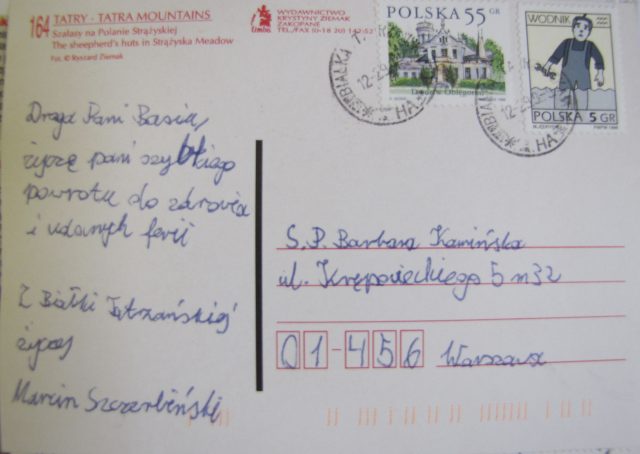 164 TATRY - TATRA MOUNTAINS
Szałasy na Polanie Strążyskiej
The sheepherd's huts in Strążyska Meadow
Fot. © Ryszard Ziemak
WYDAWNICTWO
KRYSTYNY ZIEMAK
ZAKOPANE
TEL/FAX (0-18 20) 142-52
POLSKA 55 GR
WODNIK
POLSKA 5 GR
Droga Pani Basiu,
życzę pani szybkiego
powrotu do zdrowia
i udanych ferii
Z Białki Tatrzańskiej
życzy
Marcin Szczerbiński
S.P. Barbara Kamińska
ul. Krępowieckiego 5 m32
01-456 Warszawa